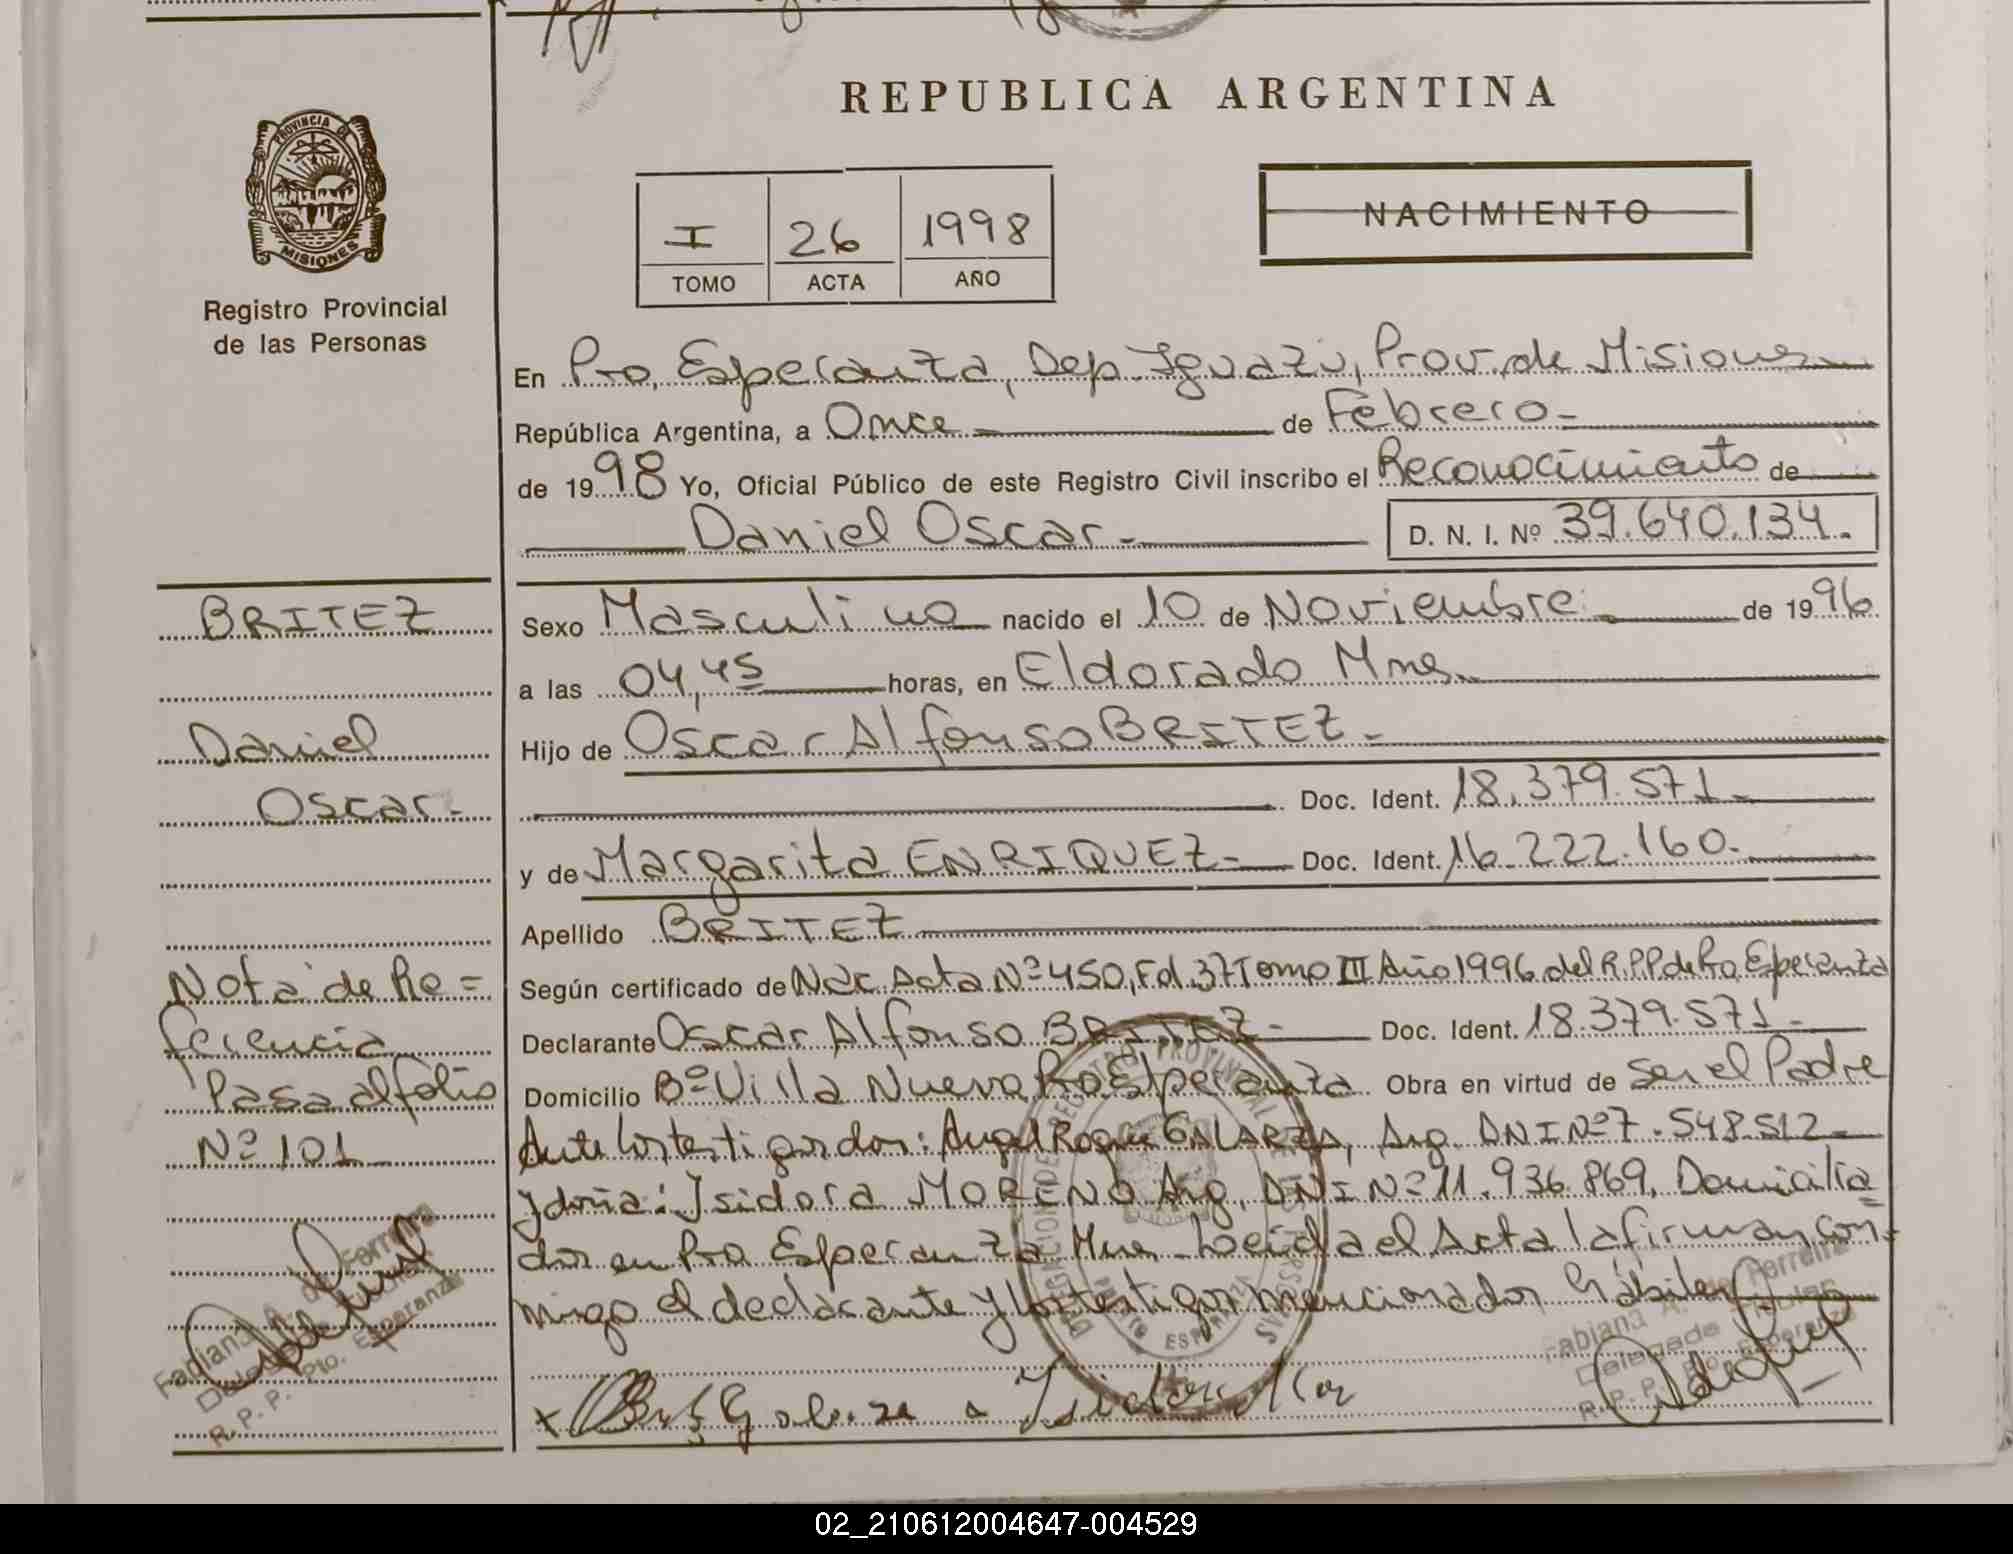 REPUBLICA ARGENTINA
PROVINCIA DE
MISIONES
Registro Provincial
de las Personas
I
TOMO
26
ACTA
1998
AÑO
NACIMIENTO
En Pto. Esperanza, Dep. Iguazú, Prov. de Misiones
República Argentina, a Once de Febrero
de 1998 Yo, Oficial Público de este Registro Civil inscribo el Reconocimiento de
Daniel Oscar.-
D. N. I. Nº 39.640.134.
BRITEZ
Daniel
Oscar.-
Nota de Re=
ferencia
Pasa al folio
Nº 101
Sexo Masculino nacido el 10 de Noviembre de 1996
a las 04,45 horas, en Eldorado Mnes.
Hijo de Oscar Alfonso BRITEZ.-
Doc. Ident. 18.379.571.-
y de Margarita ENRIQUEZ.- Doc. Ident. 16.222.160.-
Apellido BRITEZ
Según certificado de Nac. Acta Nº 450, Fol. 37 Tomo III Año 1996 del R.P.P. de Pto. Esperanza
Declarante Oscar Alfonso BRITEZ.- Doc. Ident. 18.379.571.-
Domicilio Bº Villa Nueva Pto. Esperanza Obra en virtud de Ser el Padre
Ante los testigos don: Angel Roque GALARZA, Arg. DNI Nº 7.548.512
y doña: Isidora MORENO Arg, DNI Nº 11.936.869, Domicilia=
dos en Pto Esperanza Mnes. Leida el Acta la firman con-
migo el declarante y los testigos mencionados hábiles
Galarza Isidora Mor
Fabiana A. de Ferreira
Delegada Titular
R. P. P. Pto. Esperanza
Fabiana A. de Ferreira
Delegada Titular
R. P. P. Pto. Esperanza
DELEGACION DE REGISTRO PROVINCIAL DE LAS PERSONAS
PUERTO ESPERANZA
02_210612004647-004529